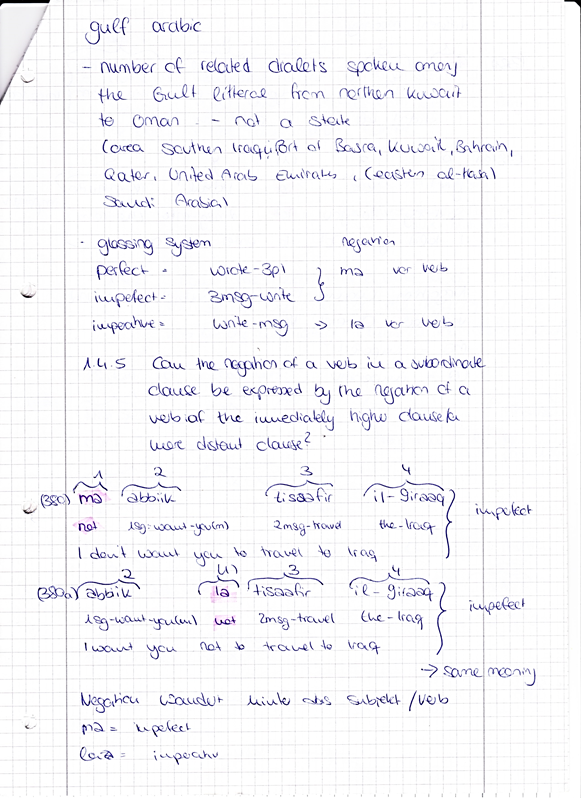 gulf arabic
- number of related dialets spoken among
the Gulf litteral from northen Kuwait
to Oman - not a state
(area Southen Iraqui, Port of Basra, Kuwait, Bahrain,
Qatar, United Arab Emirates, (eastern al-Hasa)
Saudi Arabia)
· glossing system negation
perfect = wrote-3pl } ma vor verb
impefect = 3msg-write
impeative = write-msg => la vor verb
1.4.5 Can the negation of a verb in a subordinate
clause be expressed by the negation of a
verb of the immediately higher clause
more distant clause?
1 2 3 4
(380) ma abbiik tisaafir il-9iraaq } impefect
not 1sg-want-you(m) 2msg-travel the-Iraq
I don't want you to travel to Iraq
2 (1) 3 4
(380a) abbik la tisaafir il-9iraaq } impefect
1sg-want-you(m) not 2msg-travel the-Iraq
I want you not to travel to Iraq
-> same meaning
Negation wandert hinter das Subjekt/Verb
ma = impefect
= impeativ